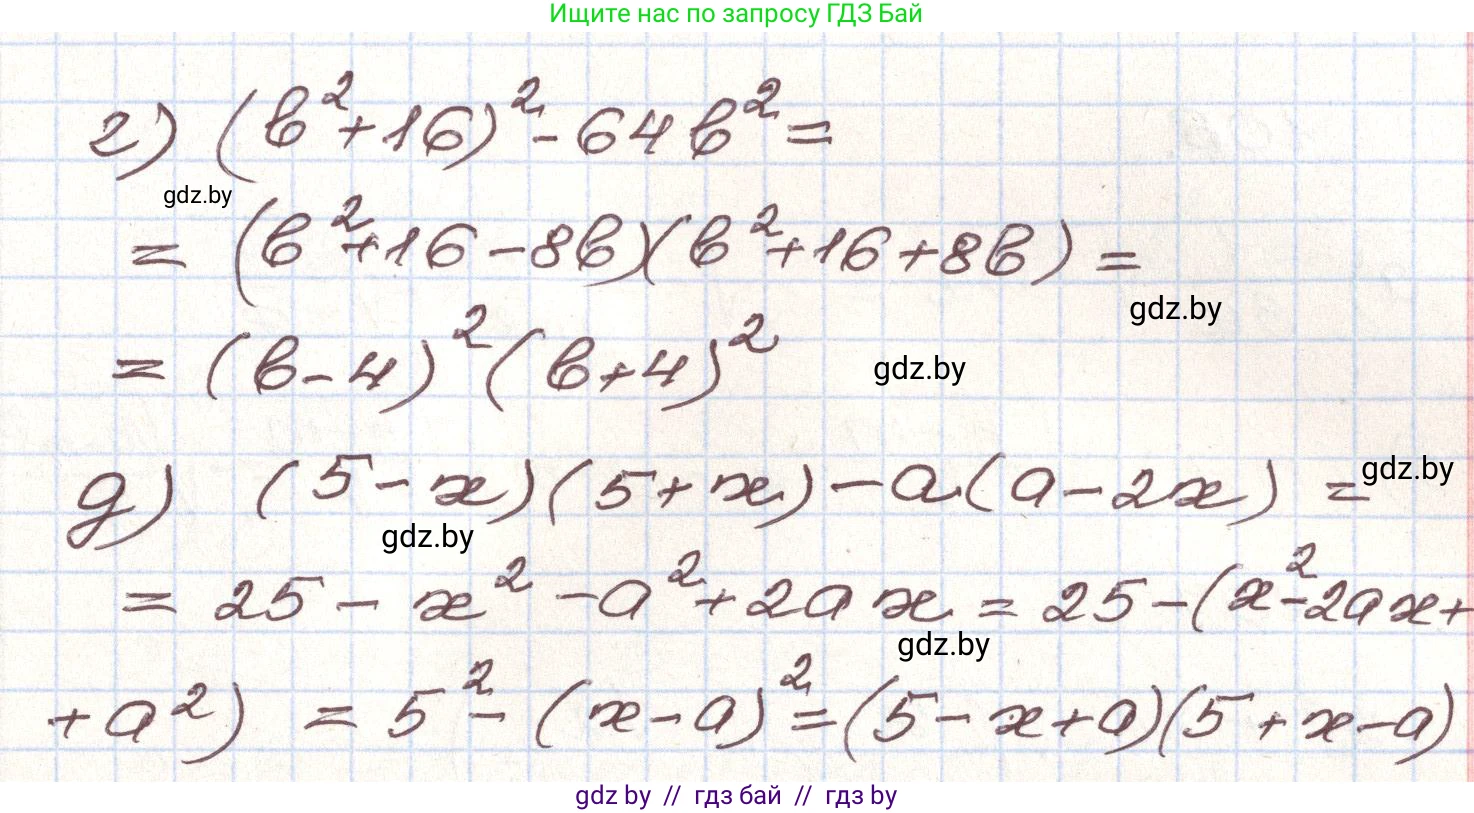 Ищите нас по запросу ГДЗ Бай
г) (в²+16)²-64в²=
gdz.by
= (в²+16-8в)(в²+16+8в)=
gdz.by
= (в-4)²(в+4)²
gdz.by
д) (5-x)(5+x)-a(a-2x) =
gdz.by
gdz.by
= 25-x²-a²+2ax = 25-(x²-2ax+
gdz.by
+a²) = 5²-(x-a)²=(5-x+a)(5+x-a)
gdz by // гдз бай // гдз by